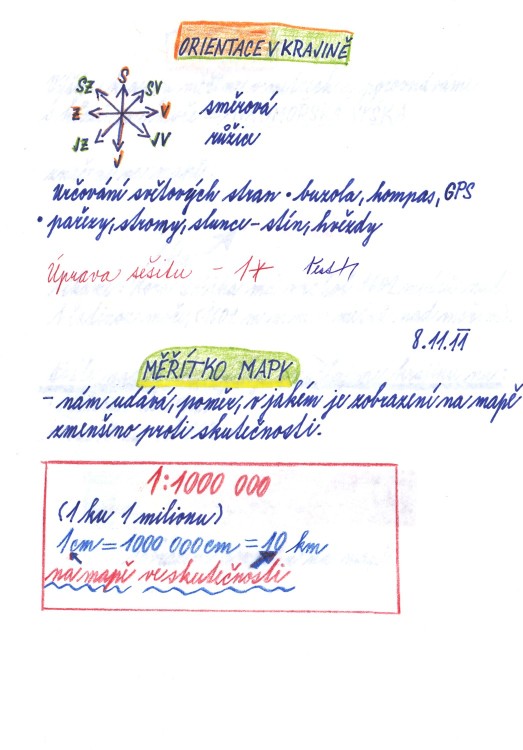 ORIENTACE V KRAJINĚ
S
SZ SV
Z V
JZ JV
J
směrová
růžice
Určování světových stran • buzola, kompas, GPS
• pařezy, stromy, slunce – stín, hvězdy
Úprava sešitu – 1* test
8.11.11
MĚŘÍTKO MAPY
– nám udává, poměr, v jakém je zobrazení na mapě
zmenšeno proti skutečnosti.
1:1000 000
(1 ku 1 milionu)
1cm = 1000 000cm = 10 km
na mapě ve skutečnosti